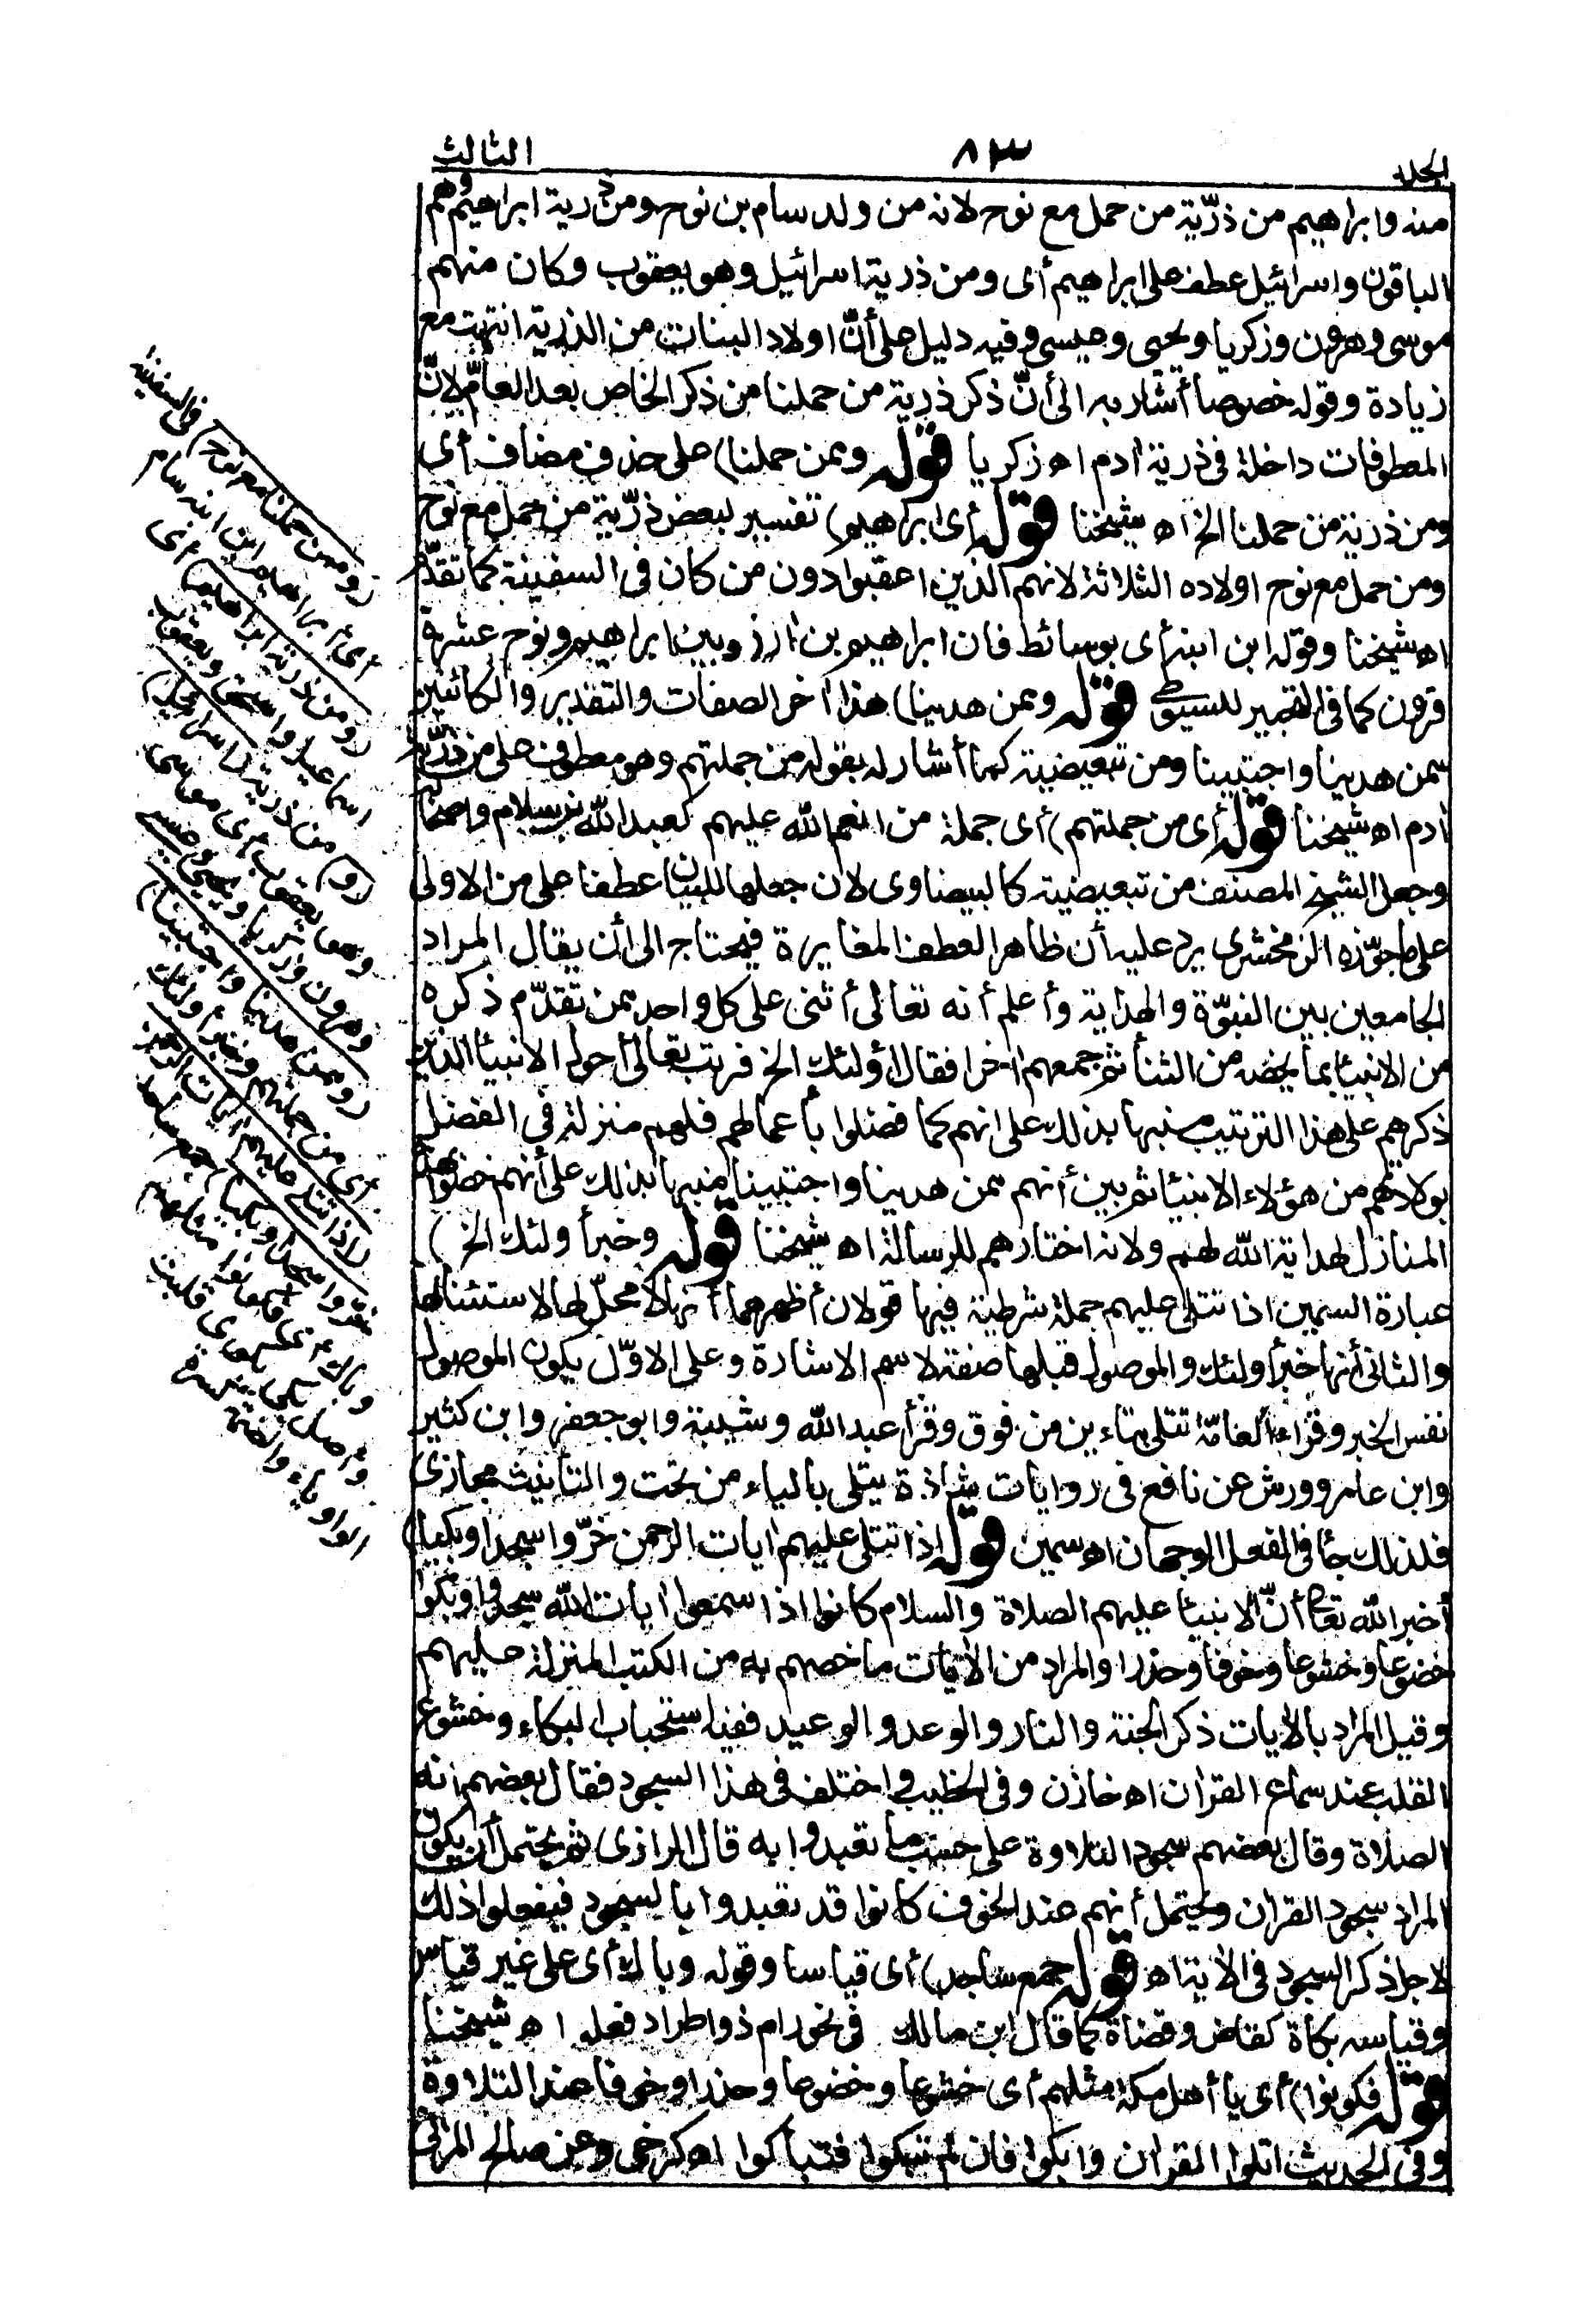 الجلد ٨٣ الثالث
منه وابراهيم من ذرّية من حمل مع نوح لانه من ولد سام بن نوح ومن ذرية ابراهيم وهم
الباقون واسرائيل عطف على ابراهيم أى ومن ذرية اسرائيل وهو يعقوب وكان منهم
موسى وهرون وزكريا ويحيى وعيسى وفيه دليل على أنّ اولاد البنات من الذرية انتهت مع
زيادة وقوله خصوصا أشار به الى أنّ ذكر ذرية من حملنا من ذكر الخاص بعد العامّ لانّ
المعطوفات داخلة فى ذرية آدم اه زكريا قوله وممن حملنا) على حذف مضاف أى
ومن ذرية من حملنا الخ اه شيخنا قوله أى ابراهيم) تفسير لبعض ذرّية من حمل مع نوح
ومن حمل مع نوح اولاده الثلاثة لانهم الذين اعقبوا دون من كان فى السفينة كما تقدّم
اه شيخنا وقوله ابن ابنه أى بوسائط فان ابراهيم بن آزر وبين ابراهيم ونوح عشرة
قرون كما فى التحبير للسيوطى قوله وممن هدينا) هذا آخر الصفات والتقدير والكائنين
ممن هدينا واجتبينا ومن تبعيضية كما أشار له بقوله من جملتهم وهو معطوف على من ذرّية
آدم اه شيخنا قوله أى من جملتهم) أى جملة من انعم الله عليهم كعبد الله بن سلام واصحابه
وجعل الشيخ المصنف من تبعيضية كالبيضاوى لان جعلها للبيان عطفا على من الاولى
على ما جوّزه الزمخشرى يرد عليه أن ظاهر العطف المغايرة فيحتاج الى أن يقال المراد
الجامعين بين النبوّة والهداية وأعلم أنه تعالى أثنى على كل واحد ممن تقدّم ذكره
من الانبيا بما يخصه من الثنا ثم جمعهم آخرا فقال أولئك الخ فرتب تعالى أحوال الانبيا الذين
ذكرهم على هذا الترتيب منبها بذلك على انهم كما فضلوا بأعمالهم فلهم منزلة فى الفضل
بولادتهم من هؤلاء الانبيا ثم بين أنهم ممن هدينا واجتبينا منبها بذلك على أنهم خصوا بهذه
المنازل لهداية الله لهم ولانه اختارهم للرسالة اه شيخنا قوله وخبر أولئك الخ)
عبارة السمين اذا تتلى عليهم جملة شرطية فيها قولان أظهرهما أنها لا محلّ لها لاستئنافها
والثانى أنها خبر أولئك والموصول قبلها صفة لاسم الاشارة وعلى الاوّل يكون الموصول
نفس الخبر وقراءة العامّة تتلى بتاءين من فوق وقرأ عبد الله وشيبة وابو جعفر وابن كثير
وابن عامر وورش عن نافع فى روايات شاذة يتلى بالياء من تحت والتأنيث مجازى
فلذلك جا فى الفعل الوجهان اه سمين قوله اذا تتلى عليهم آيات الرحمن خرّوا سجدا وبكيا)
أخبر الله تعالى أنّ الانبيا عليهم الصلاة والسلام كانوا اذا سمعوا آيات الله سجدوا وبكوا
خضوعا وخشوعا وخوفا وحذرا والمراد من الآيات ما خصهم به من الكتب المنزلة عليهم
وقيل المراد بالآيات ذكر الجنة والنار والوعد والوعيد ففيه استحباب البكاء وخشوع
القلب عند سماع القرآن اه خازن وفى الخطيب واختلف فى هذا السجود فقال بعضهم انه
الصلاة وقال بعضهم سجود التلاوة على حسب ما تعبدوا به قال الرازى ثم يحتمل أن يكون
المراد سجود القرآن ويحتمل أنهم عند الخوف كانوا قد تعبدوا بالسجود فيفعلوا ذلك
لاجل ذكر السجود فى الآية اه قوله جمع ساجد) أى قياسا وقوله وباك أى على غير قياس
وقياسه بكاة كقاض وقضاة كما قال ابن مالك فى نحو رام ذو اطراد فعله اه شيخنا
قوله فكونوا) أى يا أهل مكة مثلهم أى خشوعا وخضوعا وحذرا وخوفا عند التلاوة
وفى الحديث اتلوا القرآن وابكوا فان لم تبكوا فتباكوا اه كرخى وعن صالح المرّى
(وممن حملنا مع نوح) فى السفينة
أى ابراهيم ابن ابنه سام
(ومن ذرية ابراهيم) أى
اسماعيل واسحق ويعقوب
(و) من ذرية (اسرائيل)
وهو يعقوب أى موسى
وهرون وزكريا ويحيى وعيسى
(وممن هدينا واجتبينا)
أى من جملتهم وخبر أولئك
(اذا تتلى عليهم آيات الرحمن
خرّوا سجدا وبكيا) جمع ساجد
وباك أى فكونوا مثلهم
وأصل بكى بكوى قلبت
الواو ياء والضمة كسرة